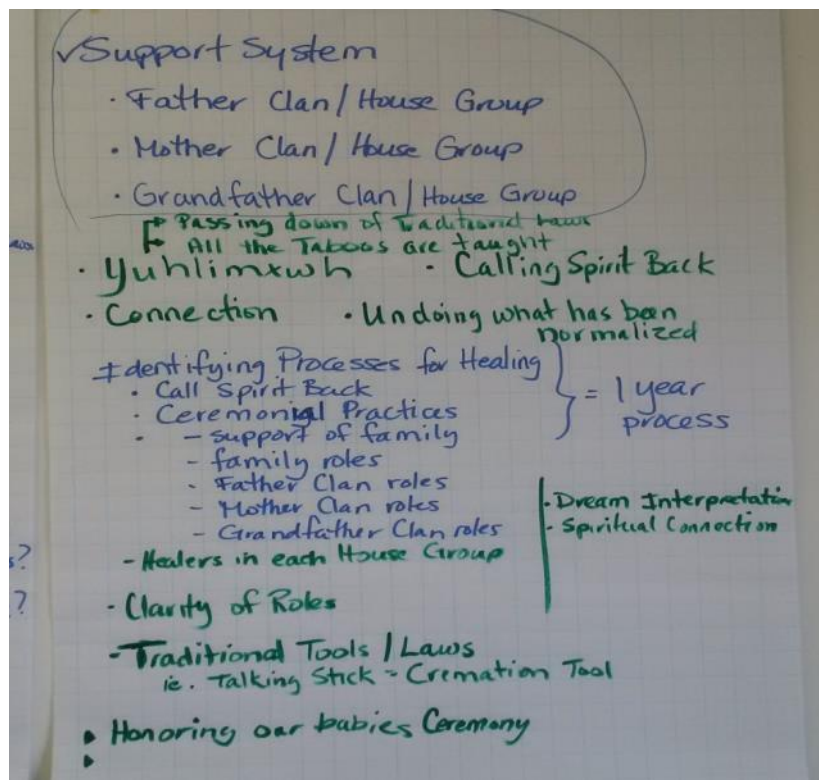 ✓Support System
· Father Clan/House Group
· Mother Clan/House Group
· Grandfather Clan/House Group
Passing down of Traditional Laws
All the Taboos are taught
· Yuhlimxwh · Calling Spirit Back
· Connection · Undoing what has been
normalized
Identifying Processes for Healing
· Call Spirit Back
· Ceremonial Practices
· - support of family
- family roles
- Father Clan roles
- Mother Clan roles
- Grandfather Clan roles
} = 1 year
process
- Healers in each House Group
· Dream Interpretation
- Spiritual Connection
- Clarity of Roles
- Traditional Tools / Laws
ie. Talking Stick - Cremation Tool
▸ Honoring our babies Ceremony